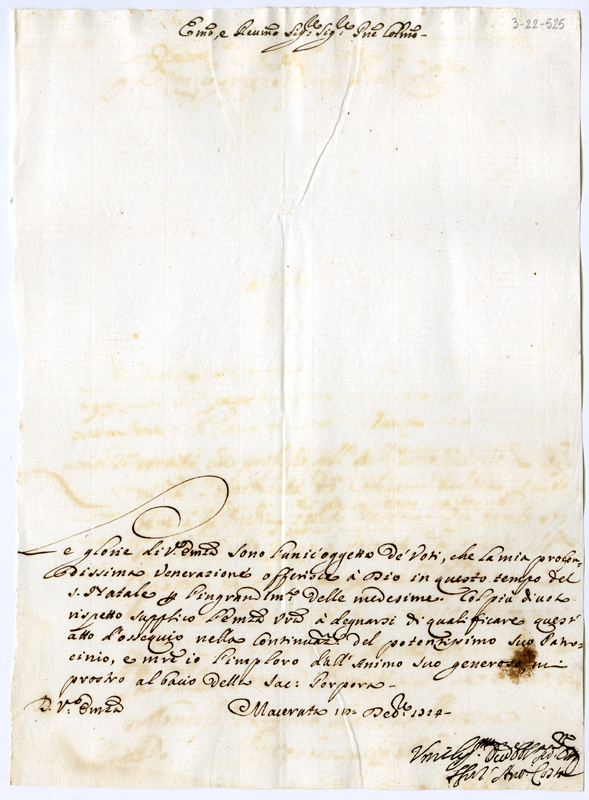 3-22-525
Emo, e Revmo Sigre Sigre Pne Colmo
Le glorie di V. Emza sono l'unic'oggetto de' Voti, che la mia profon-
dissima Venerazione offerisce à Dio in questo tempo del
S. Natale p l'ingrandimto delle medesime. Col più divoto
rispetto supplico l'Emza Vra à degnarsi di qualificare quest'
atto d'ossequio nella Continuaze del potentissimo suo Patro-
cinio, e mre io l'imploro dall'Animo suo generoso mi
prostro al bacio della Sac: Porpora
D. V. Emza
Macerata Debre